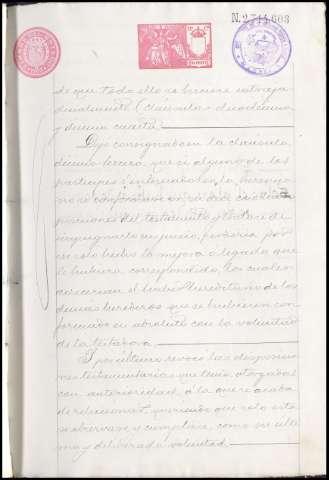 N.2.714.603
de que todo ello se hiciere extraju-
dicialmente (cláusulas duodécima
y décima cuarta)
Dejó consignado en la cláusula
décima tercera, que si alguno de los
partícipes é interesados en la herencia
no se conformare con sus
posiciones del testamento y tratare de
impugnarlo en juicio, perdería por
ese solo hecho la mejora ó legado que
le hubiera correspondido, los cuales
acrecerían el haber hereditario de los
demás herederos que se hubieren con-
formado en absoluto con la voluntad
de la testadora.
Y por último revocó las disposicio-
nes testamentarias que tenía otorgadas
con anterioridad á la que se acaba
de relacionar, queriendo que solo esta
se observase y cumpliera, como su últi-
ma y deliberada voluntad.